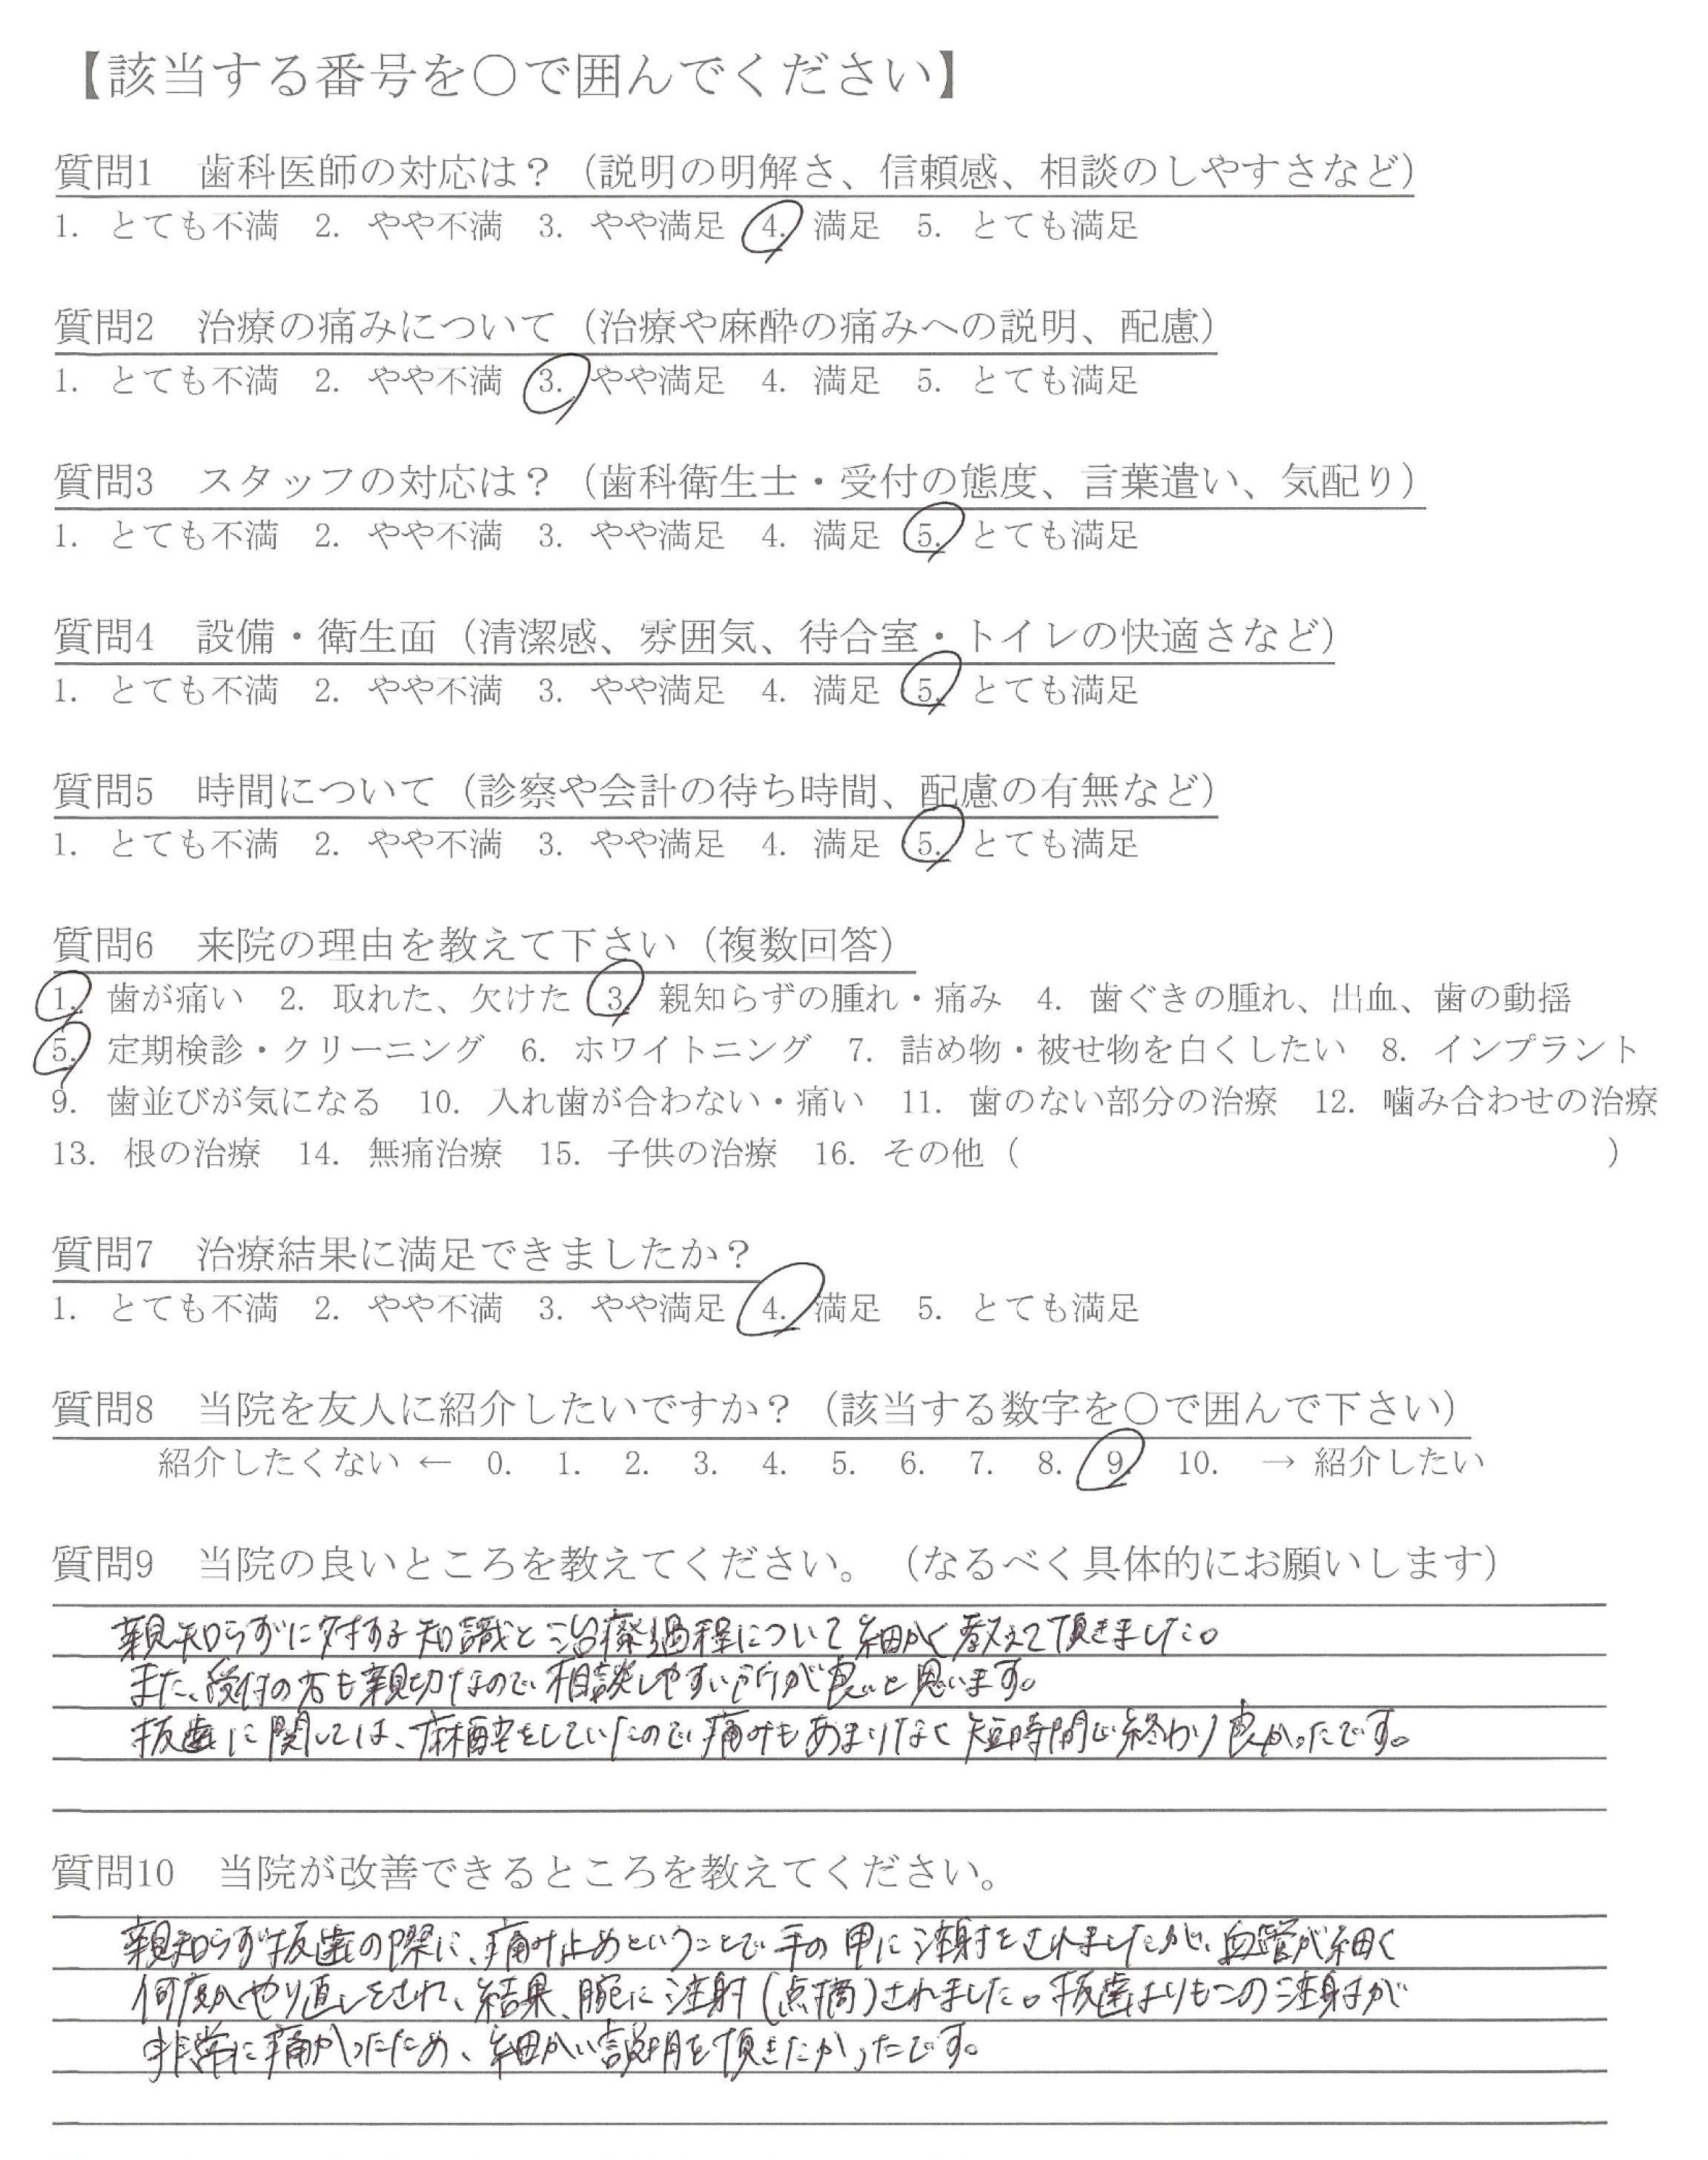 【該当する番号を〇で囲んでください】
質問1　歯科医師の対応は？（説明の明解さ、信頼感、相談のしやすさなど）
1. とても不満　2. やや不満　3. やや満足　4. 満足　5. とても満足
質問2　治療の痛みについて（治療や麻酔の痛みへの説明、配慮）
1. とても不満　2. やや不満　3. やや満足　4. 満足　5. とても満足
質問3　スタッフの対応は？（歯科衛生士・受付の態度、言葉遣い、気配り）
1. とても不満　2. やや不満　3. やや満足　4. 満足　5. とても満足
質問4　設備・衛生面（清潔感、雰囲気、待合室・トイレの快適さなど）
1. とても不満　2. やや不満　3. やや満足　4. 満足　5. とても満足
質問5　時間について（診察や会計の待ち時間、配慮の有無など）
1. とても不満　2. やや不満　3. やや満足　4. 満足　5. とても満足
質問6　来院の理由を教えて下さい（複数回答）
1. 歯が痛い　2. 取れた、欠けた　3. 親知らずの腫れ・痛み　4. 歯ぐきの腫れ、出血、歯の動揺
5. 定期検診・クリーニング　6. ホワイトニング　7. 詰め物・被せ物を白くしたい　8. インプラント
9. 歯並びが気になる　10. 入れ歯が合わない・痛い　11. 歯のない部分の治療　12. 噛み合わせの治療
13. 根の治療　14. 無痛治療　15. 子供の治療　16. その他（　　　　　　　　　　）
質問7　治療結果に満足できましたか？
1. とても不満　2. やや不満　3. やや満足　4. 満足　5. とても満足
質問8　当院を友人に紹介したいですか？（該当する数字を〇で囲んで下さい）
紹介したくない ← 0. 1. 2. 3. 4. 5. 6. 7. 8. 9. 10. → 紹介したい
質問9　当院の良いところを教えてください。（なるべく具体的にお願いします）
親知らずに対する知識と治療過程について細かく教えて頂きました。
また、受付の方も親切なので、相談しやすい所が良いと思います。
抜歯に関しては、麻酔をしていたので、痛みもあまりなく短時間で終わり良かったです。
質問10　当院が改善できるところを教えてください。
親知らず抜歯の際に、痛み止めということで手の甲に注射をされましたが、血管が細く
何度かやり直しをされ、結果、腕に注射（点滴）されました。抜歯よりもこの注射が
非常に痛かったため、細かい説明を頂きたかったです。